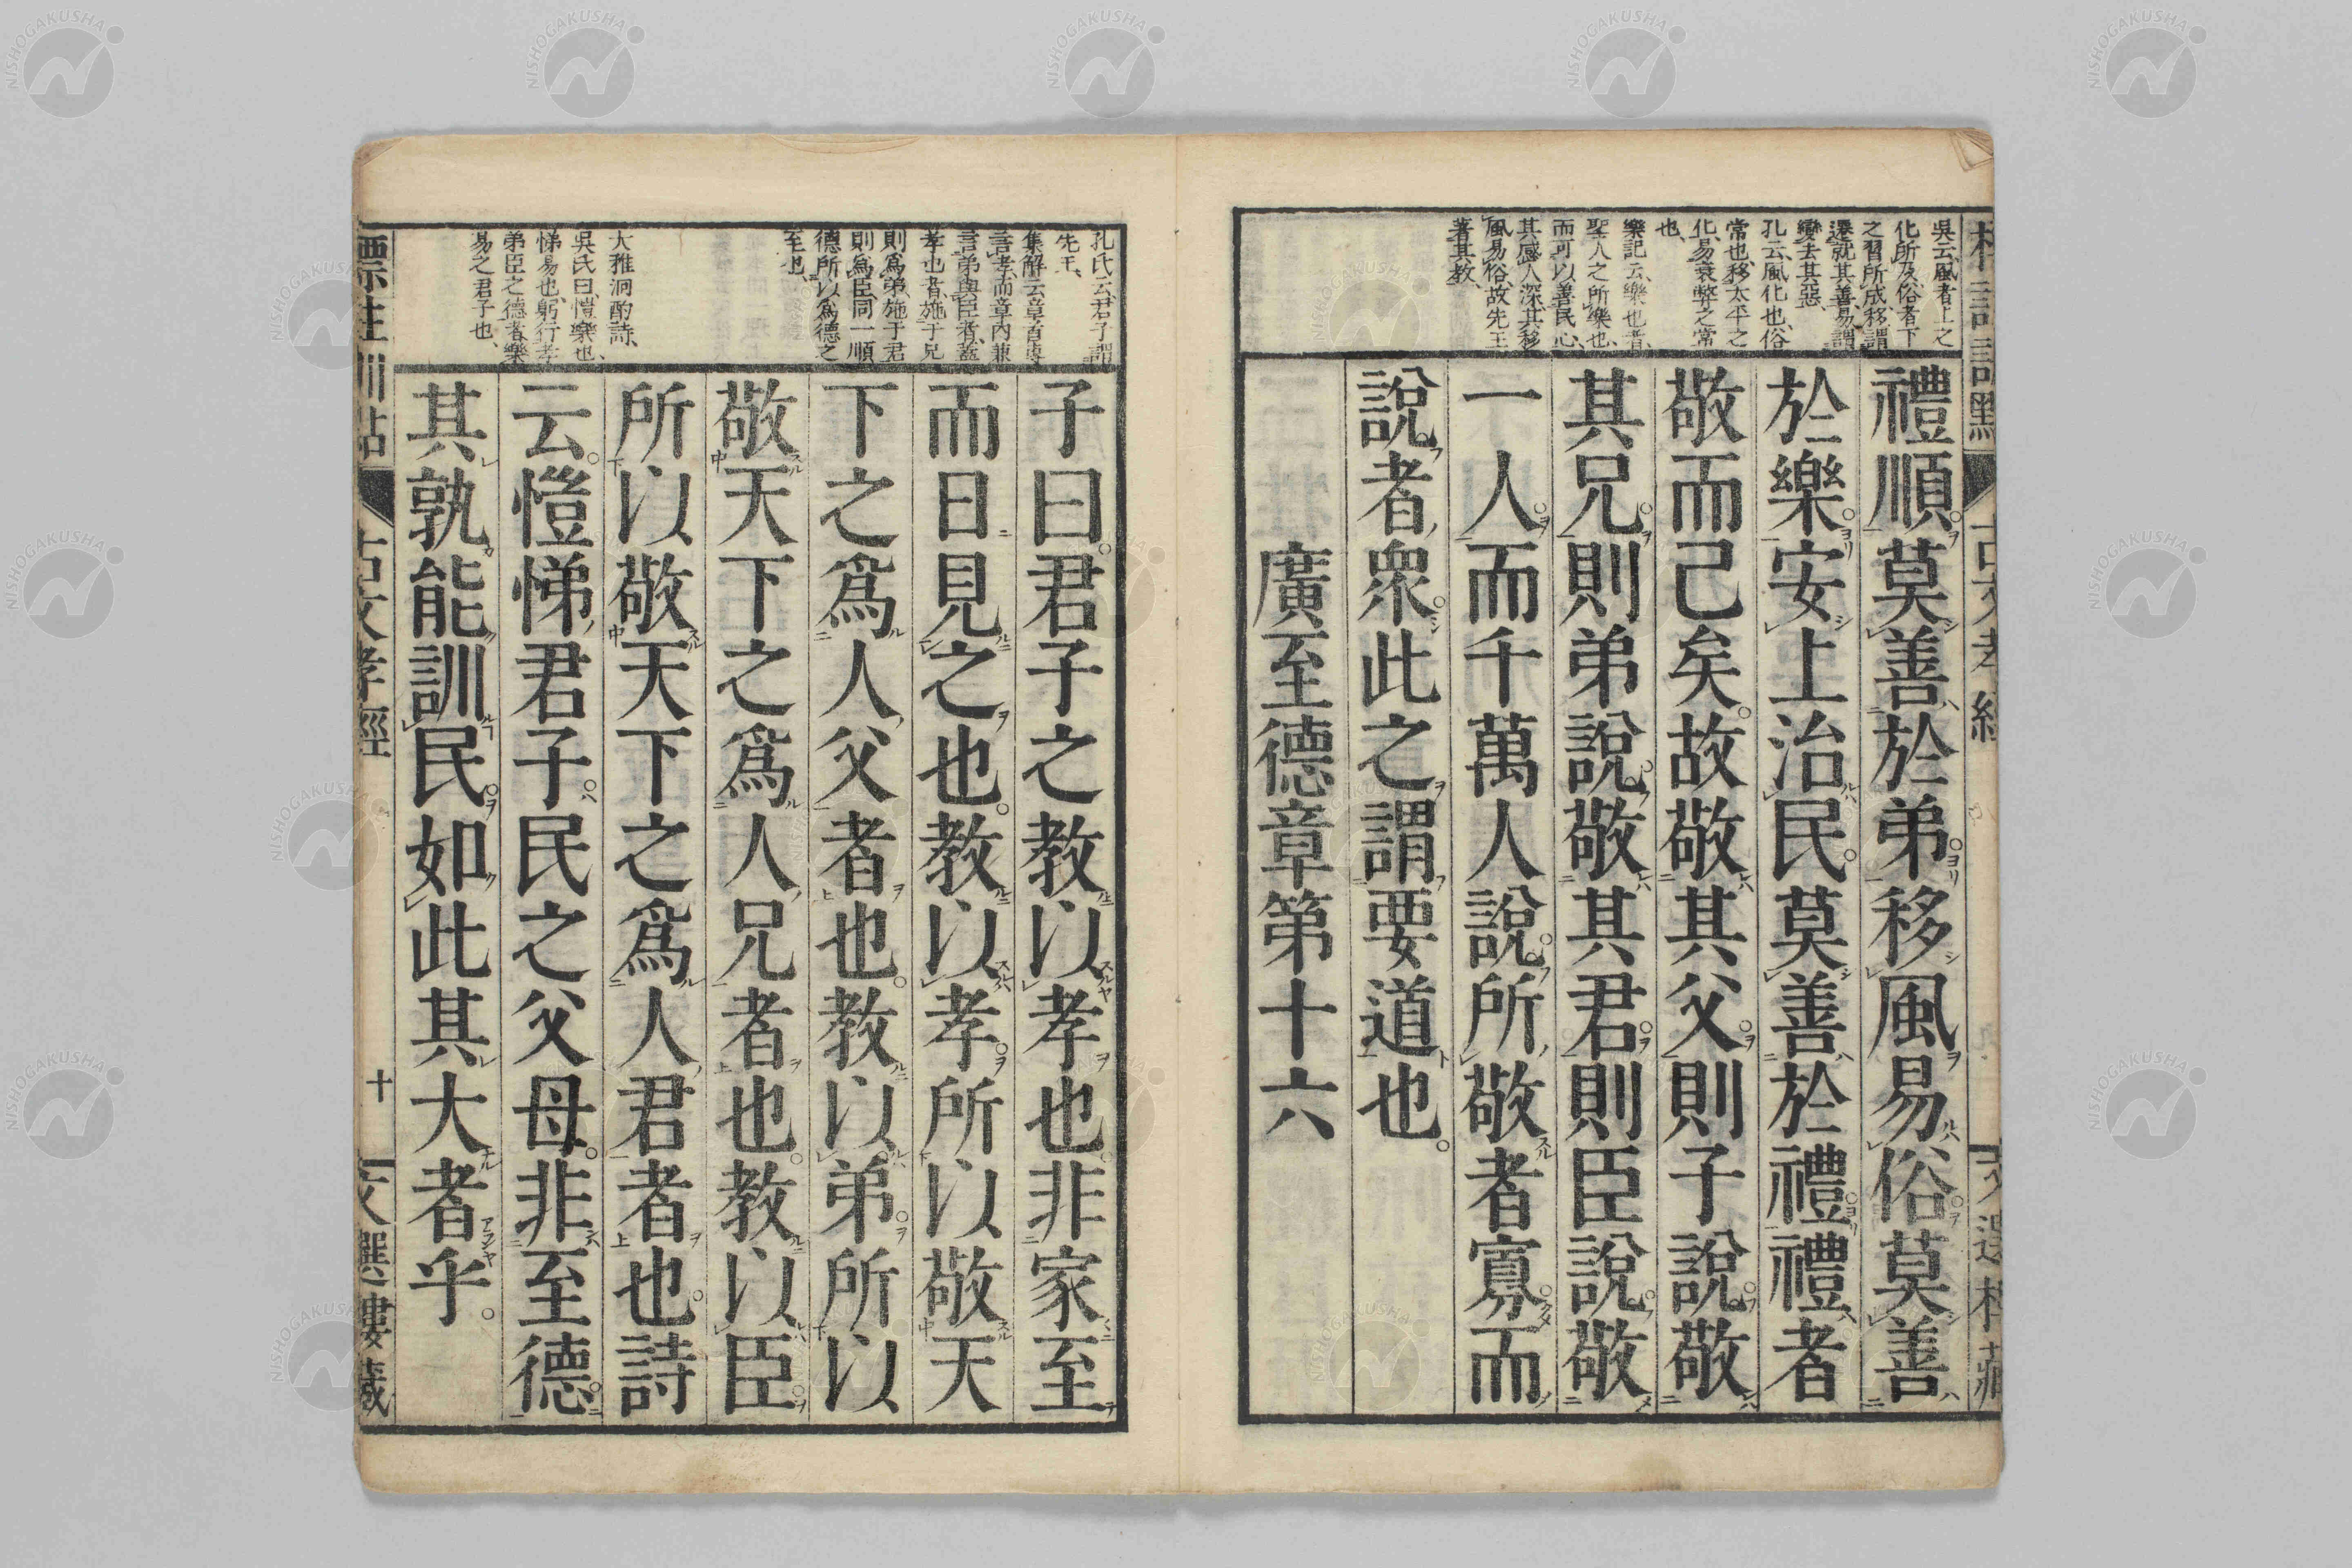 吳云風者上之
化所及俗者下
之習所成移謂
遷就其善易謂
變去其惡
孔云風化也俗
常也移太平之
化易衰弊之常
也
樂記云樂也者
聖人之所樂也
而可以善民心
其感人深其移
風易俗故先王
著其教
禮順莫善於弟移風易俗莫善
於樂安上治民莫善於禮禮者
敬而己矣故敬其父則子說敬
其兄則弟說敬其君則臣說敬
一人而千萬人說所敬者寡而
說者衆此之謂要道也
廣至德章第十六
孔氏云君子謂
先王
集解云章首專
言孝而章內兼
言弟與臣者蓋
孝也者施于兄
則爲弟施于君
則爲臣同一順
德所以爲德之
至也
大雅泂酌詩
吳氏曰愷樂也
悌易也躬行孝
弟臣之德者樂
易之君子也
子曰君子之教以孝也非家至
而日見之也教以孝所以敬天
下之爲人父者也教以弟所以
敬天下之爲人兄者也教以臣
所以敬天下之爲人君者也詩
云愷悌君子民之父母非至德
其孰能訓民如此其大者乎
標註訓點 古文孝經 十 文選樓藏